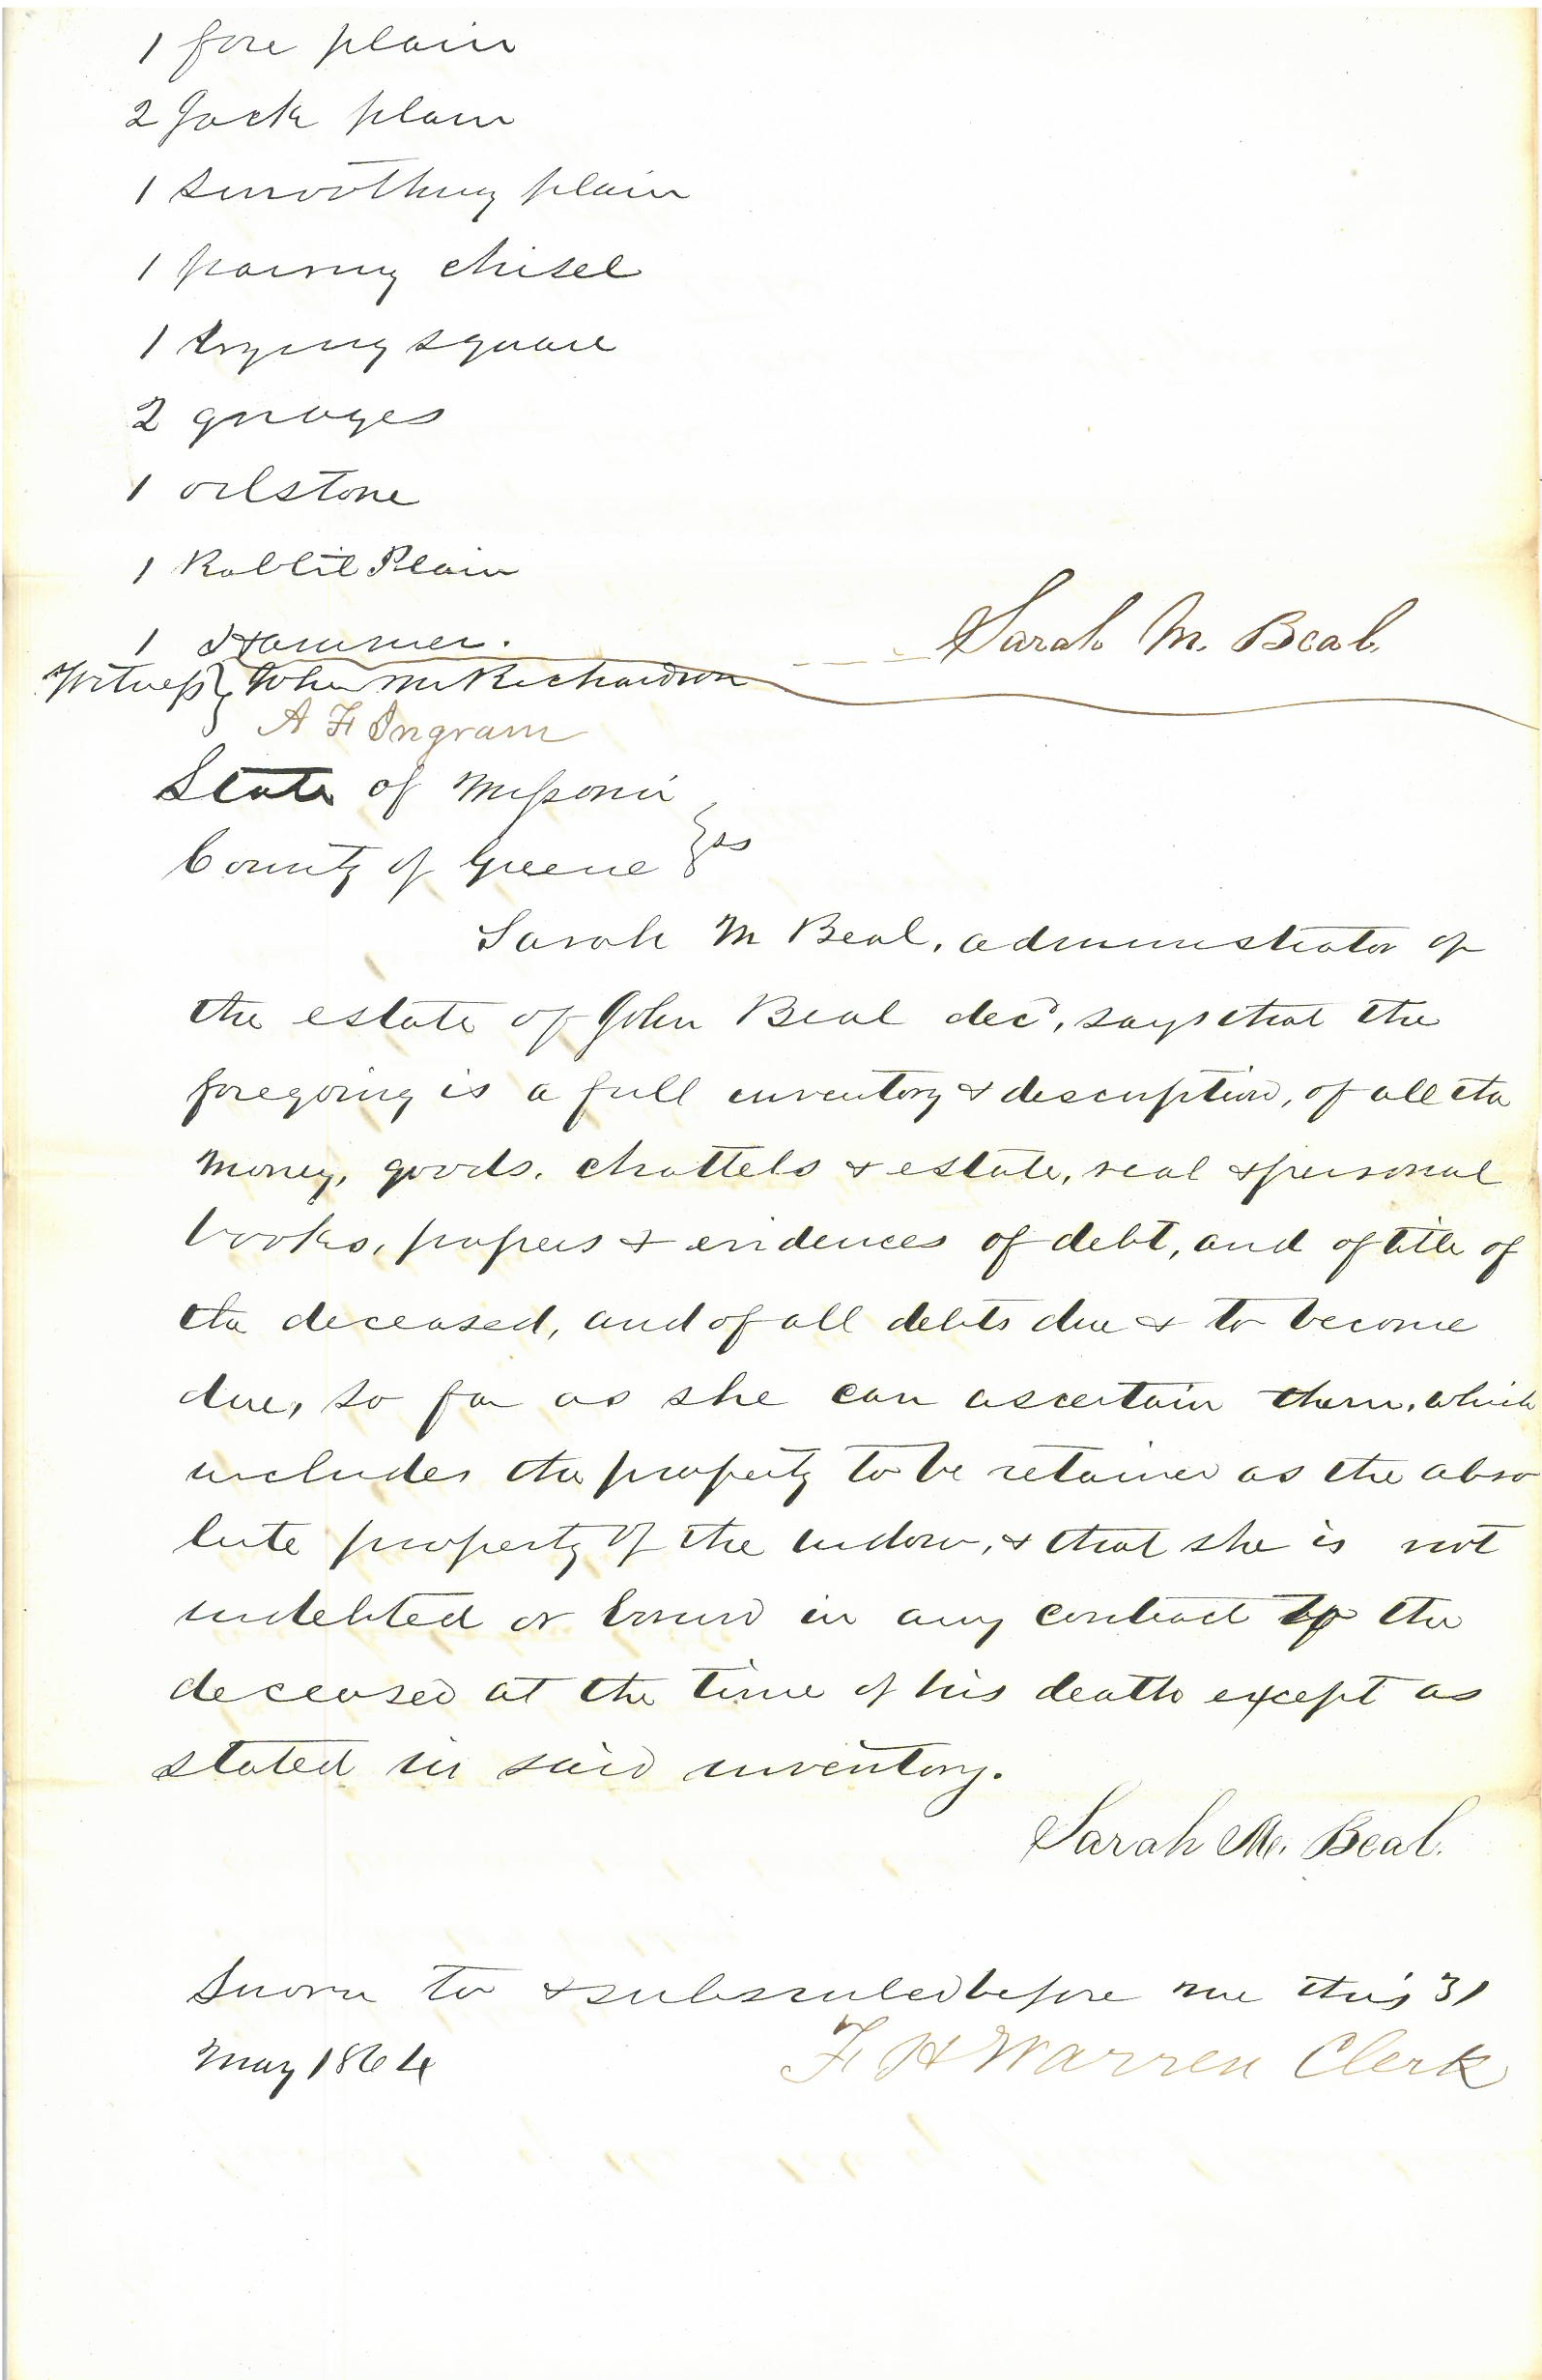 1 fore plain
2 Jack plain
1 smoothing plain
1 paring chisel
1 trying square
2 guages
1 oilstone
1 Rabbit Plain
1 Hammer.
Sarah M. Beal.
Witness } John M Richardson
A F Ingram
State of Missouri
County of Greene } ss
Sarah M Beal, administrator of
the estate of John Beal decd, says that the
foregoing is a full inventory & description, of all the
money, goods, chattels & estate, real & personal
books, papers & evidences of debt, and of title of
the deceased, and of all debts due & to become
due, so far as she can ascertain them, which
includes the property to be retained as the abso
lute property of the widow, & that she is not
indebted or bound in any contract to the
deceased at the time of his death except as
stated in said inventory.
Sarah M. Beal.
Sworn to & subscribed before me this 31
May 1864 F H Warren Clerk